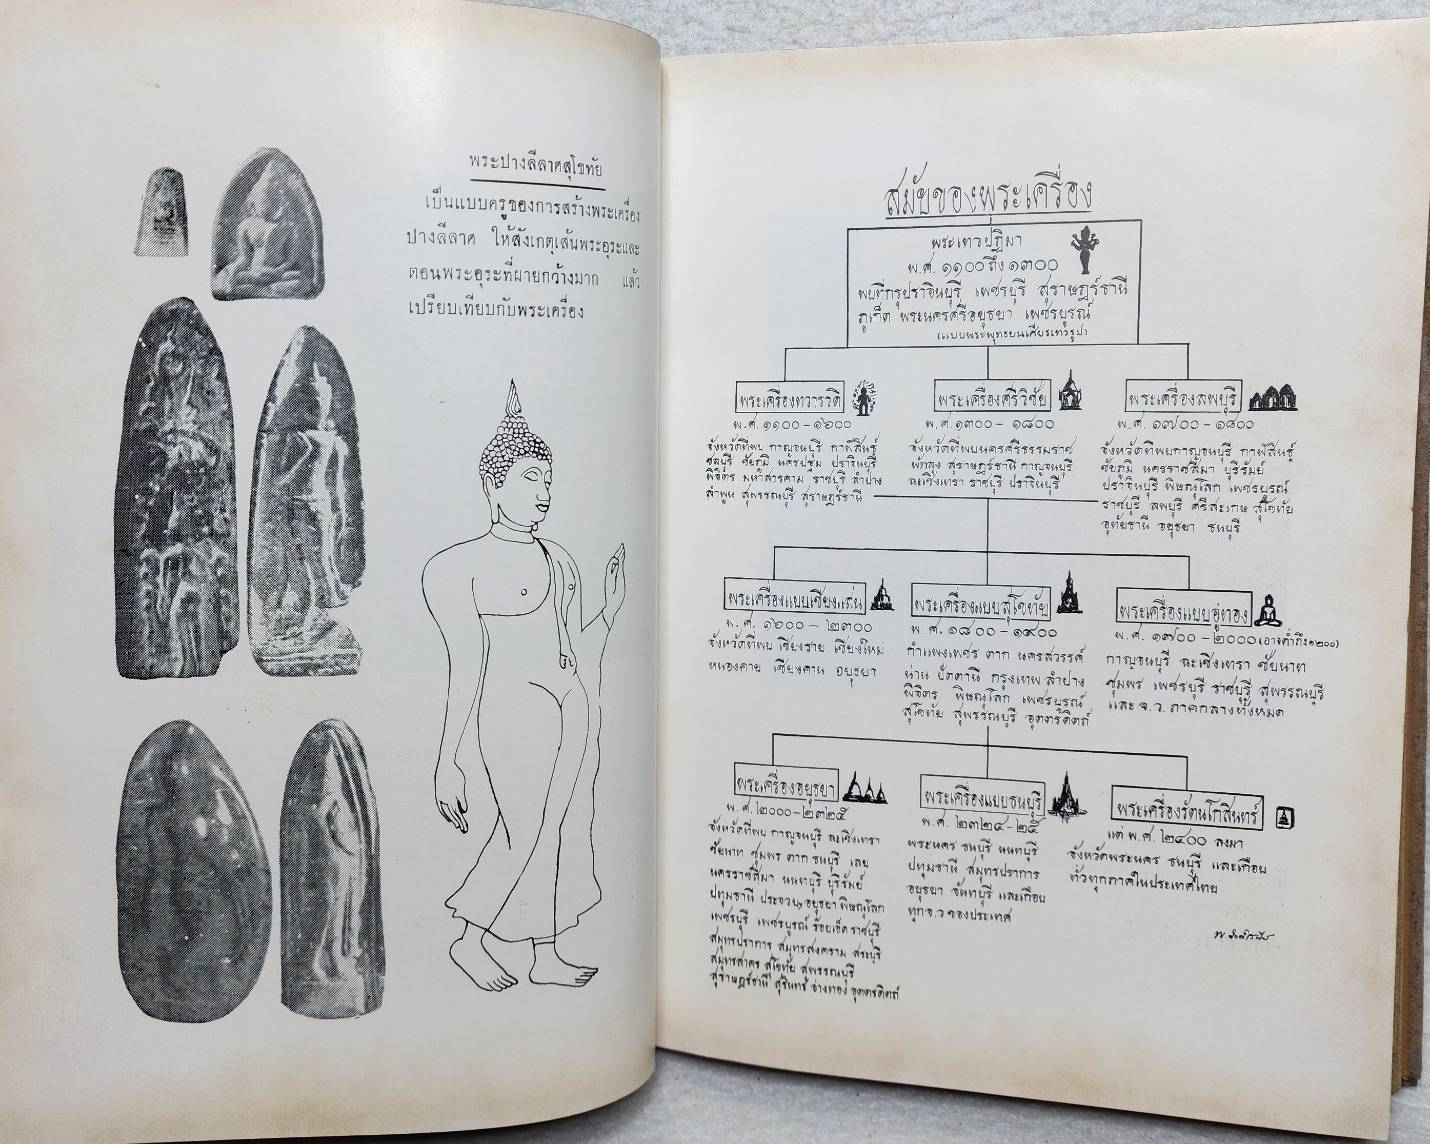 พระปางลีลาศสุโขทัย
เป็นแบบครูของการสร้างพระเครื่อง
ปางลีลาศ ให้สังเกตุเส้นพระอุระและ
ตอนพระอุระที่ผายกว้างมาก แล้ว
เปรียบเทียบกับพระเครื่อง
สมัยของพระเครื่อง
พระเทวปฏิมา
พ.ศ. ๑๑๐๐ ถึง ๑๓๐๐
พบที่กรุปราจีนบุรี เพชรบุรี สุราษฎร์ธานี
ภูเก็ต พระนครศรีอยุธยา เพชรบูรณ์
(แบบพระพุทธยนเศียรเทวรูป)
พระเครื่องทวารวดี
พ.ศ. ๑๑๐๐ - ๑๖๐๐
จังหวัดที่พบ กาญจนบุรี กาฬสินธุ์
ชลบุรี ชัยภูมิ นครปฐม ปราจีนบุรี
พิจิตร มหาสารคาม ราชบุรี ลำปาง
ลำพูน สุพรรณบุรี สุราษฎร์ธานี
พระเครื่องศรีวิชัย
พ.ศ. ๑๓๐๐ - ๑๘๐๐
จังหวัดที่พบนครศรีธรรมราช
พัทลุง สุราษฎร์ธานี กาญจนบุรี
ฉะเชิงเทรา ราชบุรี ปราจีนบุรี
พระเครื่องลพบุรี
พ.ศ. ๑๗๐๐ - ๑๘๐๐
จังหวัดที่พบกาญจนบุรี กาฬสินธุ์
ชัยภูมิ นครราชสีมา บุรีรัมย์
ปราจีนบุรี พิษณุโลก เพชรบูรณ์
ราชบุรี ลพบุรี ศรีสะเกษ สุโขทัย
อุทัยธานี อยุธยา ธนบุรี
พระเครื่องแบบเชียงแสน
พ.ศ. ๑๖๐๐ - ๒๓๐๐
จังหวัดที่พบ เชียงราย เชียงใหม่
หนองคาย เชียงคาน อยุธยา
พระเครื่องแบบสุโขทัย
พ.ศ. ๑๘๐๐ - ๑๙๐๐
กำแพงเพชร ตาก นครสวรรค์
น่าน ปัตตานี กรุงเทพ ลำปาง
พิจิตร พิษณุโลก เพชรบูรณ์
สุโขทัย สุพรรณบุรี อุตตรดิตถ์
พระเครื่องแบบอู่ทอง
พ.ศ. ๑๗๐๐ - ๒๐๐๐ (อาจต่ำถึง๑๒๐๐)
กาญจนบุรี ฉะเชิงเทรา ชัยนาท
ชุมพร เพชรบุรี ราชบุรี สุพรรณบุรี
และ จ.ว. ภาคกลางทั้งหมด
พระเครื่องอยุธยา
พ.ศ. ๒๐๐๐ - ๒๓๒๕
จังหวัดที่พบ กาญจนบุรี ฉะเชิงเทรา
ชัยนาท ชุมพร ตาก ธนบุรี เลย
นครราชสีมา นนทบุรี บุรีรัมย์
ปทุมธานี ประจวบฯ อยุธยา พิษณุโลก
เพชรบุรี เพชรบูรณ์ ร้อยเอ็ด ราชบุรี
สมุทรปราการ สมุทรสงคราม สระบุรี
สมุทรสาคร สุโขทัย สุพรรณบุรี
สุราษฎร์ธานี สุรินทร์ อ่างทอง อุตตรดิตถ์
พระเครื่องแบบธนบุรี
พ.ศ. ๒๓๒๔ - ๒๕
พระนคร ธนบุรี นนทบุรี
ปทุมธานี สมุทรปราการ
อยุธยา จันทบุรี และเกือบ
ทุก จ.ว ของประเทศ
พระเครื่องรัตนโกสินทร์
แต่ พ.ศ. ๒๔๐๐ ลงมา
จังหวัดพระนคร ธนบุรี และเกือบ
ทั่วทุกภาคในประเทศไทย